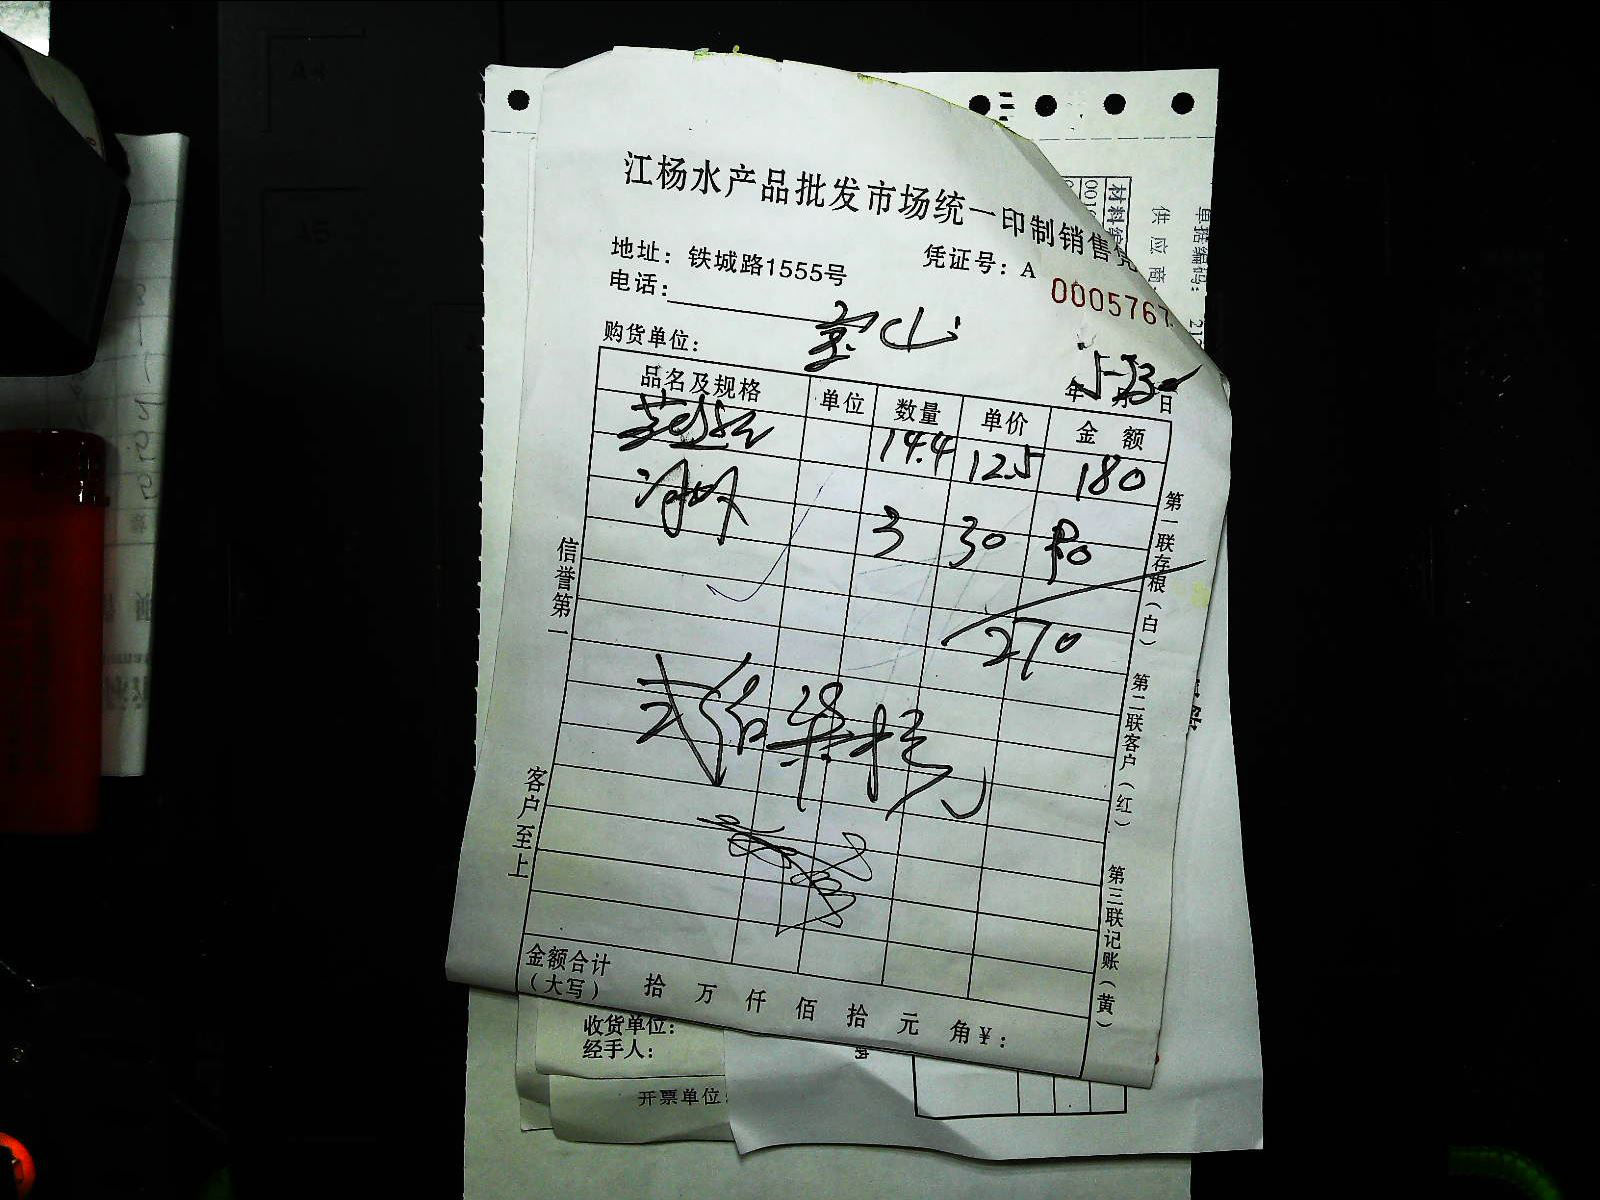 江杨水产品批发市场统一印制销售凭
地址：铁城路1555号
凭证号：A 0005767
电话：
购货单位： 宝山
年 月 日
5-23
品名及规格 单位 数量 单价 金额
14.4 12.5 180
3 30 90
270
贰佰柒拾元
信誉第一
客户至上
第一联存根（白）
第二联客户（红）
第三联记账（黄）
金额合计
（大写） 拾 万 仟 佰 拾 元 角￥：
收货单位：
经手人：
开票单位：
单据编码：
供应商
材料